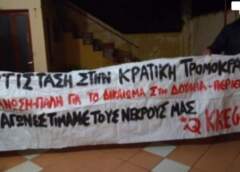 ΤΙΣΤΑΣΗ ΣΤΗΝ ΚΡΑΤΙΚΗ ΤΡΟΜΟΚΡΑ
ΝΩΣΗ-ΠΑΛΗ ΓΙΑ ΤΟ ΔΙΚΑΙΩΜΑ ΣΤΗ ΔΟΥΛΕΙΑ-
ΑΓΩΝΕΣ ΤΙΜΑΜΕ ΤΟΥΣ ΝΕΚΡΟΥΣ ΜΑΣ